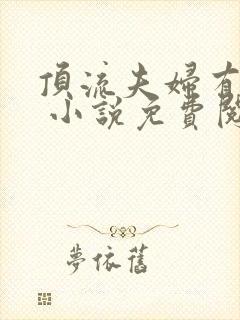 頂流夫婦有
小說免費閱
夢依舊